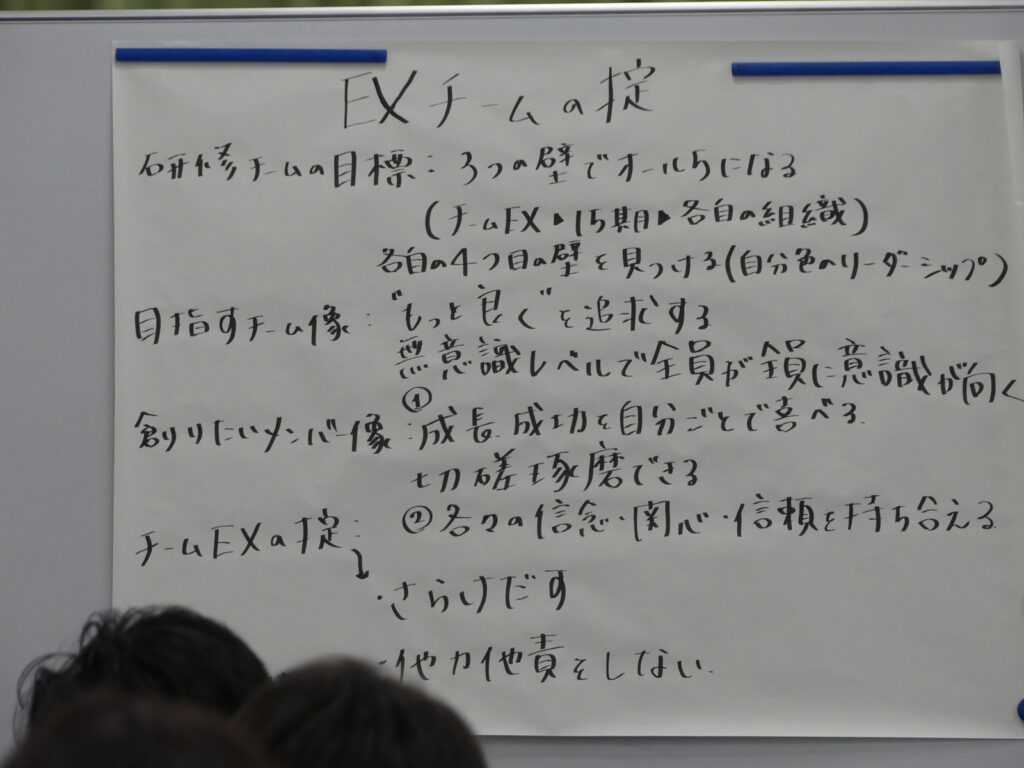 EXチームの掟
研修チームの目標：3つの壁でオール5になる
(チームEX▶15期▶各自の組織)
各自の4つ目の壁を見つける(自分色のリーダーシップ)
目指すチーム像："もっと良く"を追求する
無意識レベルで全員が全員に意識が向く
創りたいメンバー像：①成長.成功を自分ごとで喜べる.
切磋琢磨できる
②各々の信念・関心・信頼を持ち合える.
チームEXの掟：
・さらけだす
・他力他責をしない.